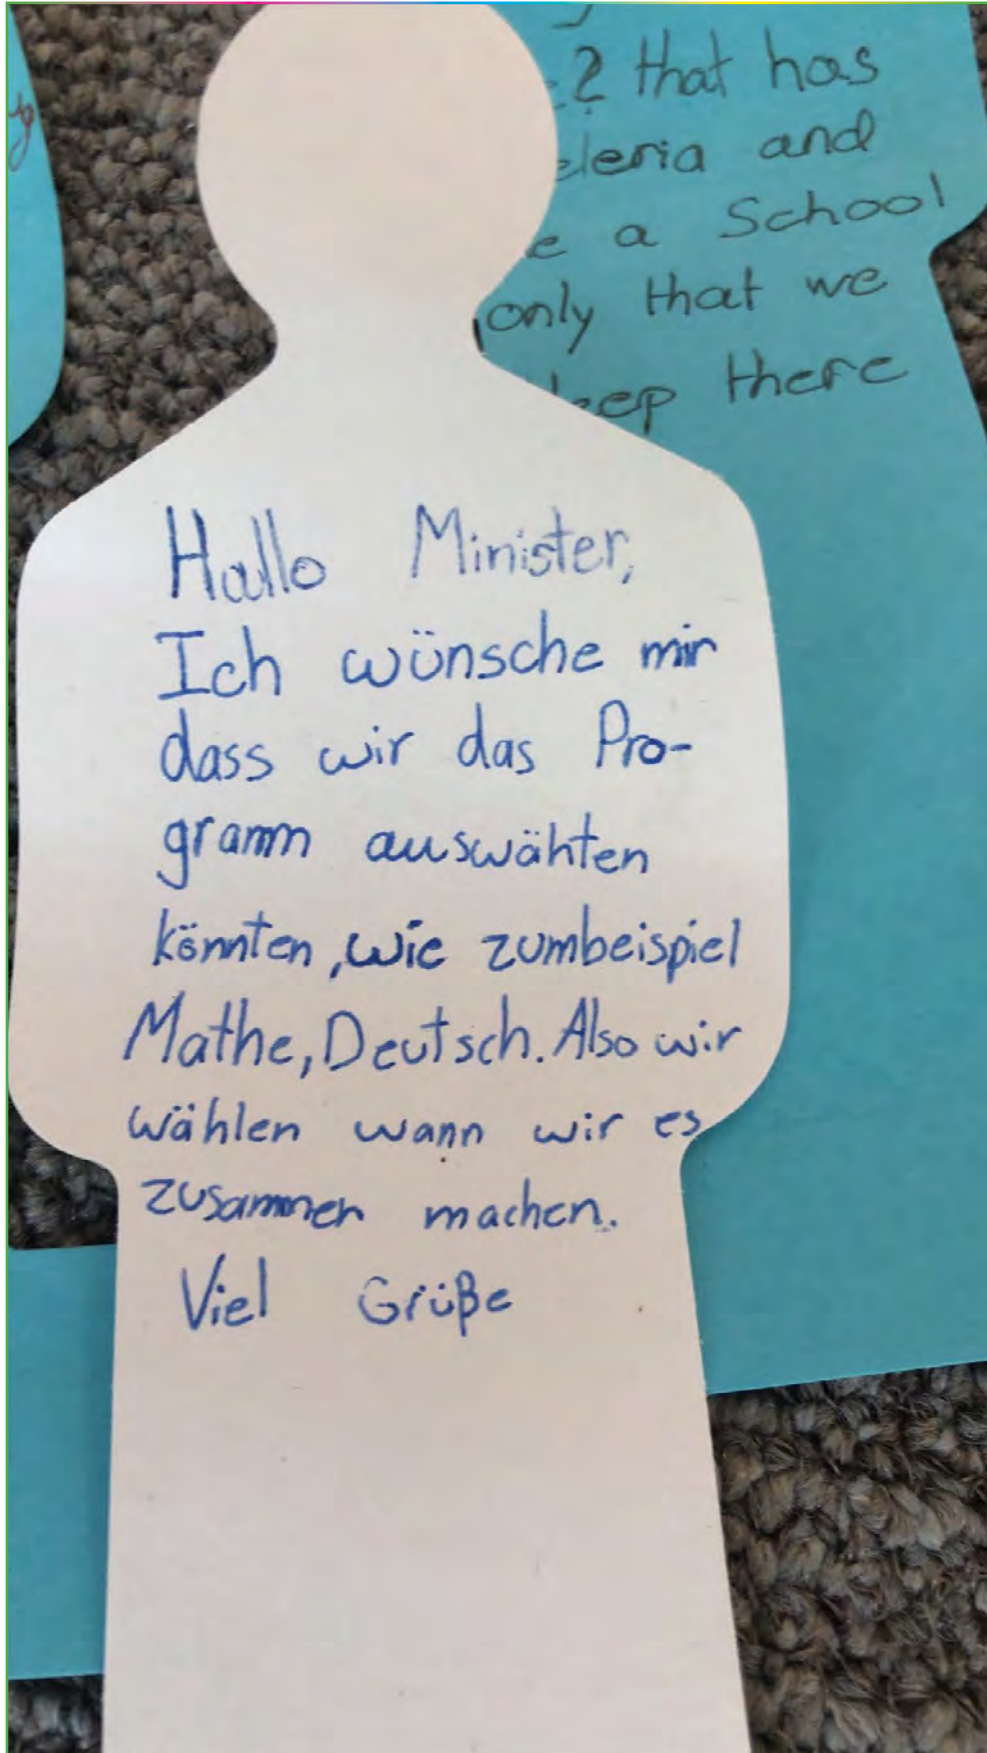 ? that has
and
a School
only that we
there
Hallo Minister,
Ich wünsche mir
dass wir das Pro-
gramm auswähten
könnten, wie zumbeispiel
Mathe, Deutsch. Also wir
wählen wann wir es
zusammen machen.
Viel Grüße